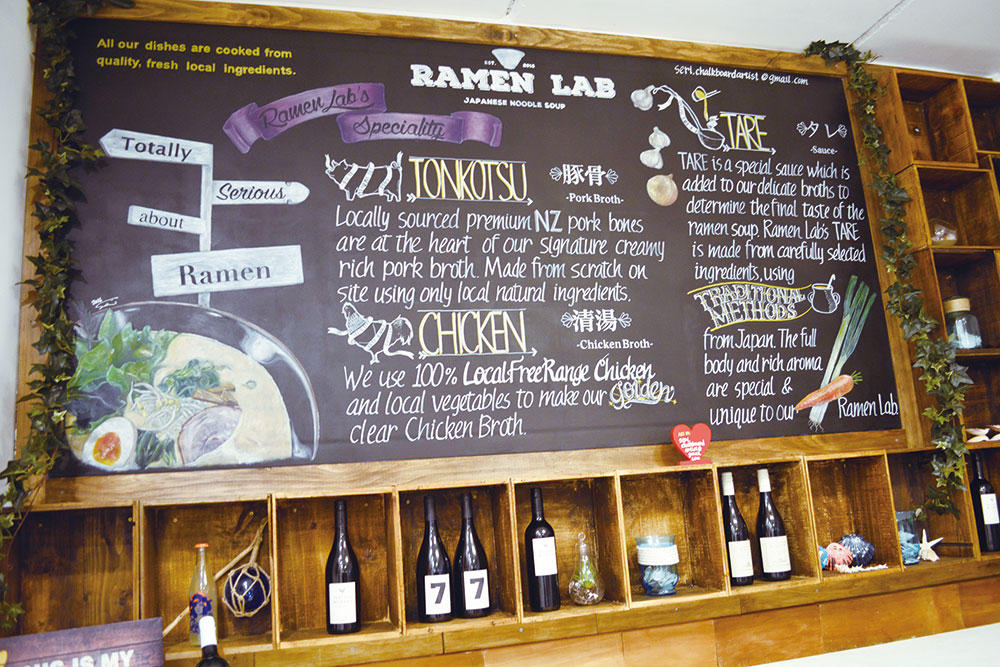 All our dishes are cooked from
quality, fresh local ingredients.
EST. 2015
RAMEN LAB
JAPANESE NOODLE SOUP
seri.chalkboardartist@gmail.com
Ramen Lab's
Speciality
Totally
Serious
about
Ramen
TONKOTSU
豚骨
-Pork Broth-
Locally sourced premium NZ pork bones
are at the heart of our signature creamy
rich pork broth. Made from scratch on
site using only local natural ingredients.
CHICKEN
清湯
-Chicken Broth-
We use 100% Local Free Range Chicken
and local vegetables to make our golden,
clear Chicken Broth.
TARE
タレ
-Sauce-
TARE is a special sauce which is
added to our delicate broths to
determine the final taste of the
ramen soup. Ramen Lab's TARE
is made from carefully selected
ingredients, using
TRADITIONAL
METHODS
from Japan. The full
body and rich aroma
are special &
unique to our Ramen Lab.
7
7
IS MY